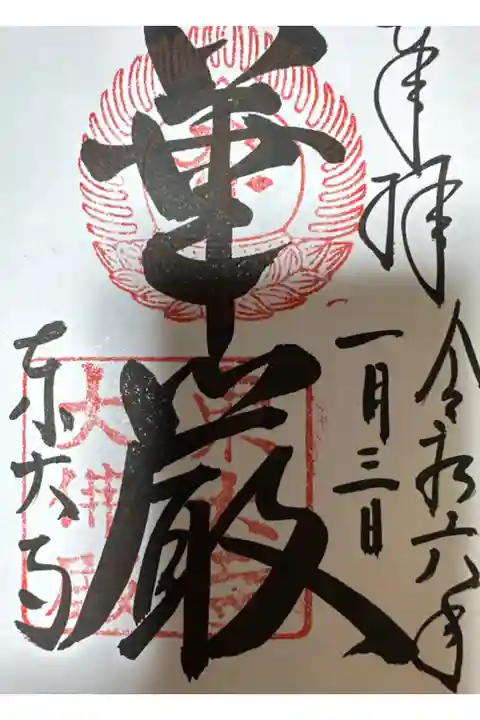 奉拝
令和六年
一月三日
華厳
東大寺
東大寺
大佛殿